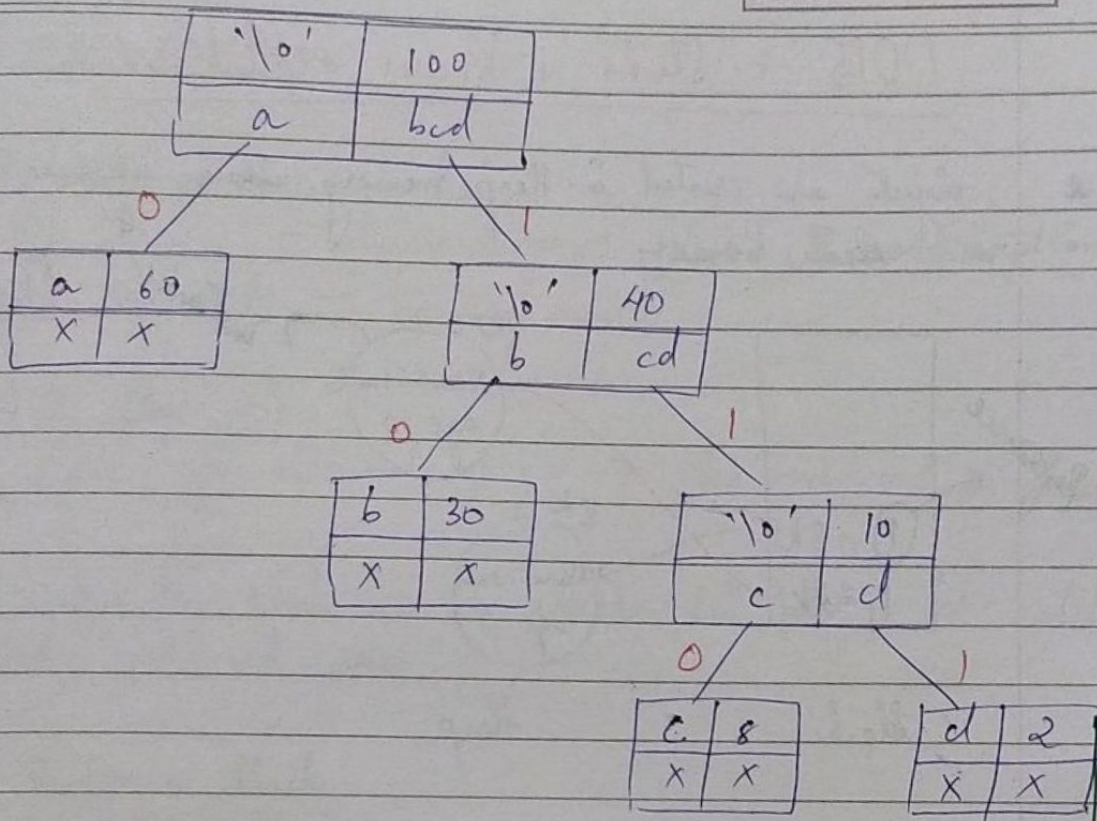 '\0' 100
a bcd
0 1
a 60
x x
'\0' 40
b cd
0 1
b 30
x x
'\0' 10
c d
0 1
c 8
x x
d 2
x x